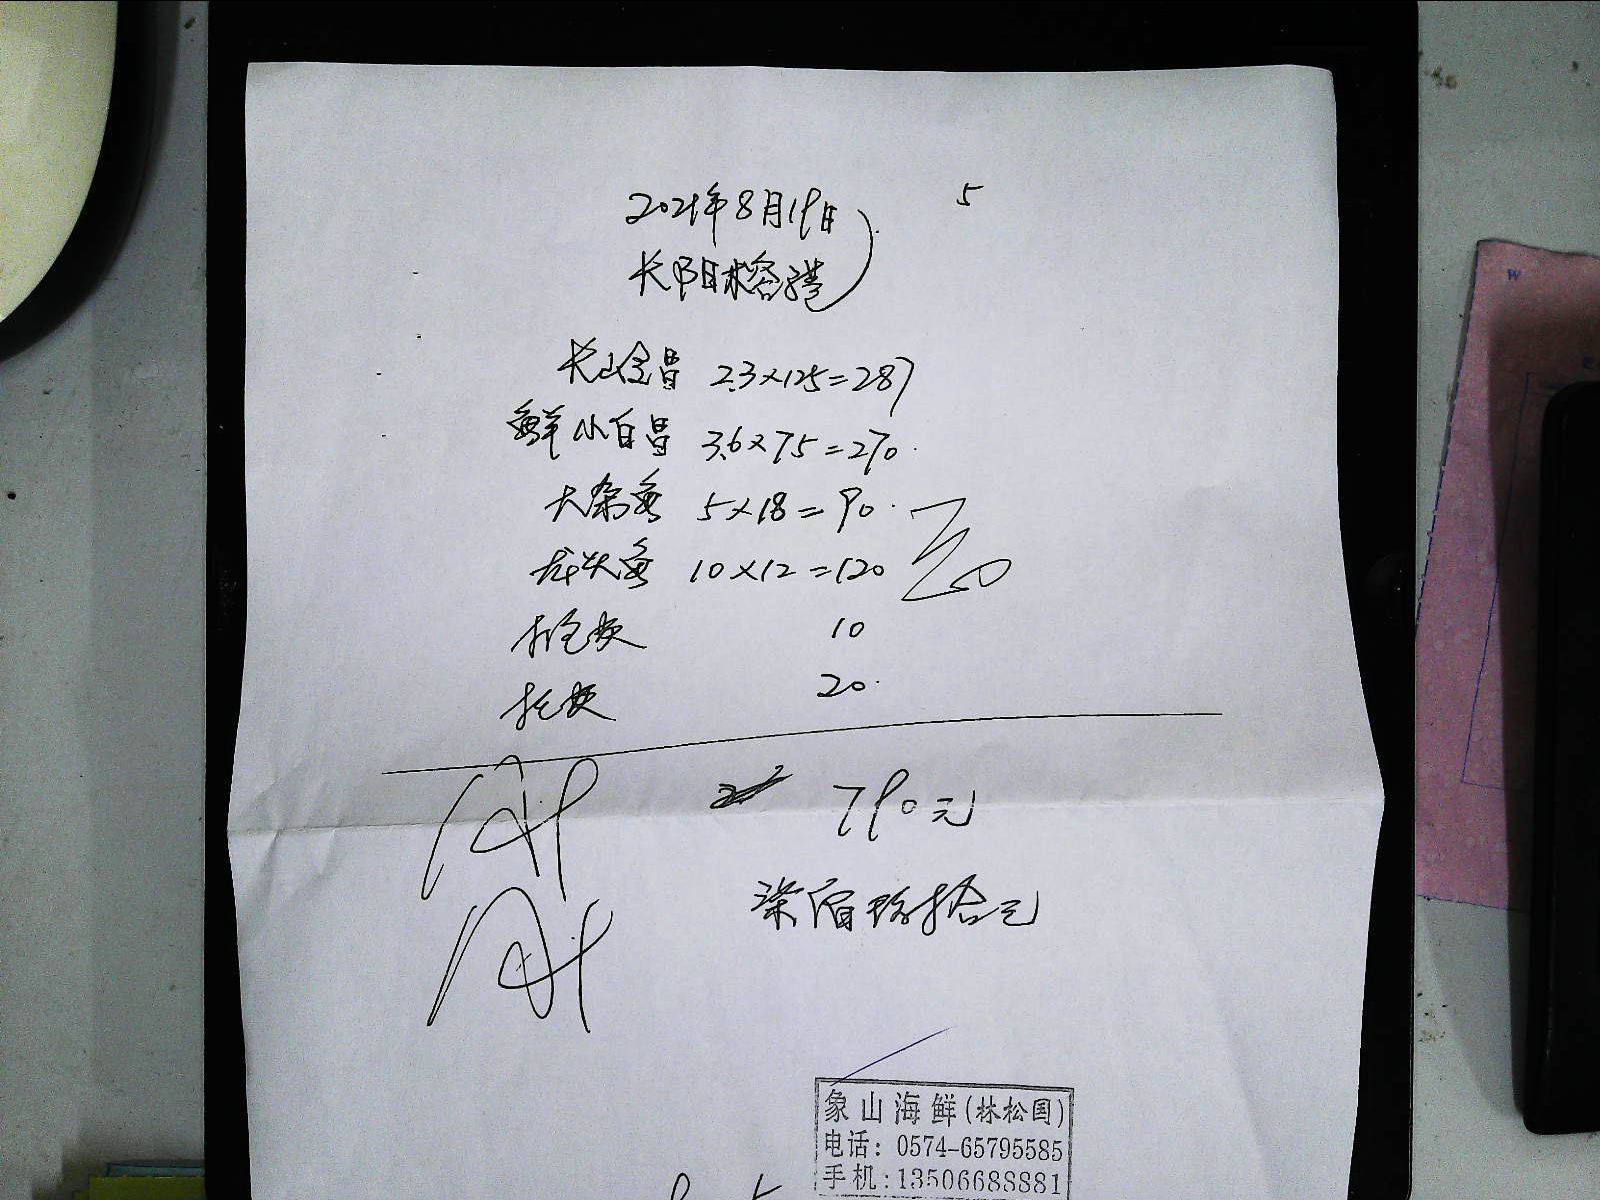 2021年8月19日
5
长阳木容港
长山金昌 2.3×125=287
鲜小白昌 3.6×75=270.
大杂鱼 5×18=90.
龙头鱼 10×12=120
10
20.
790元
柒佰玖拾元
象山海鲜(林松国)
电话: 0574-65795585
手机:13506688881